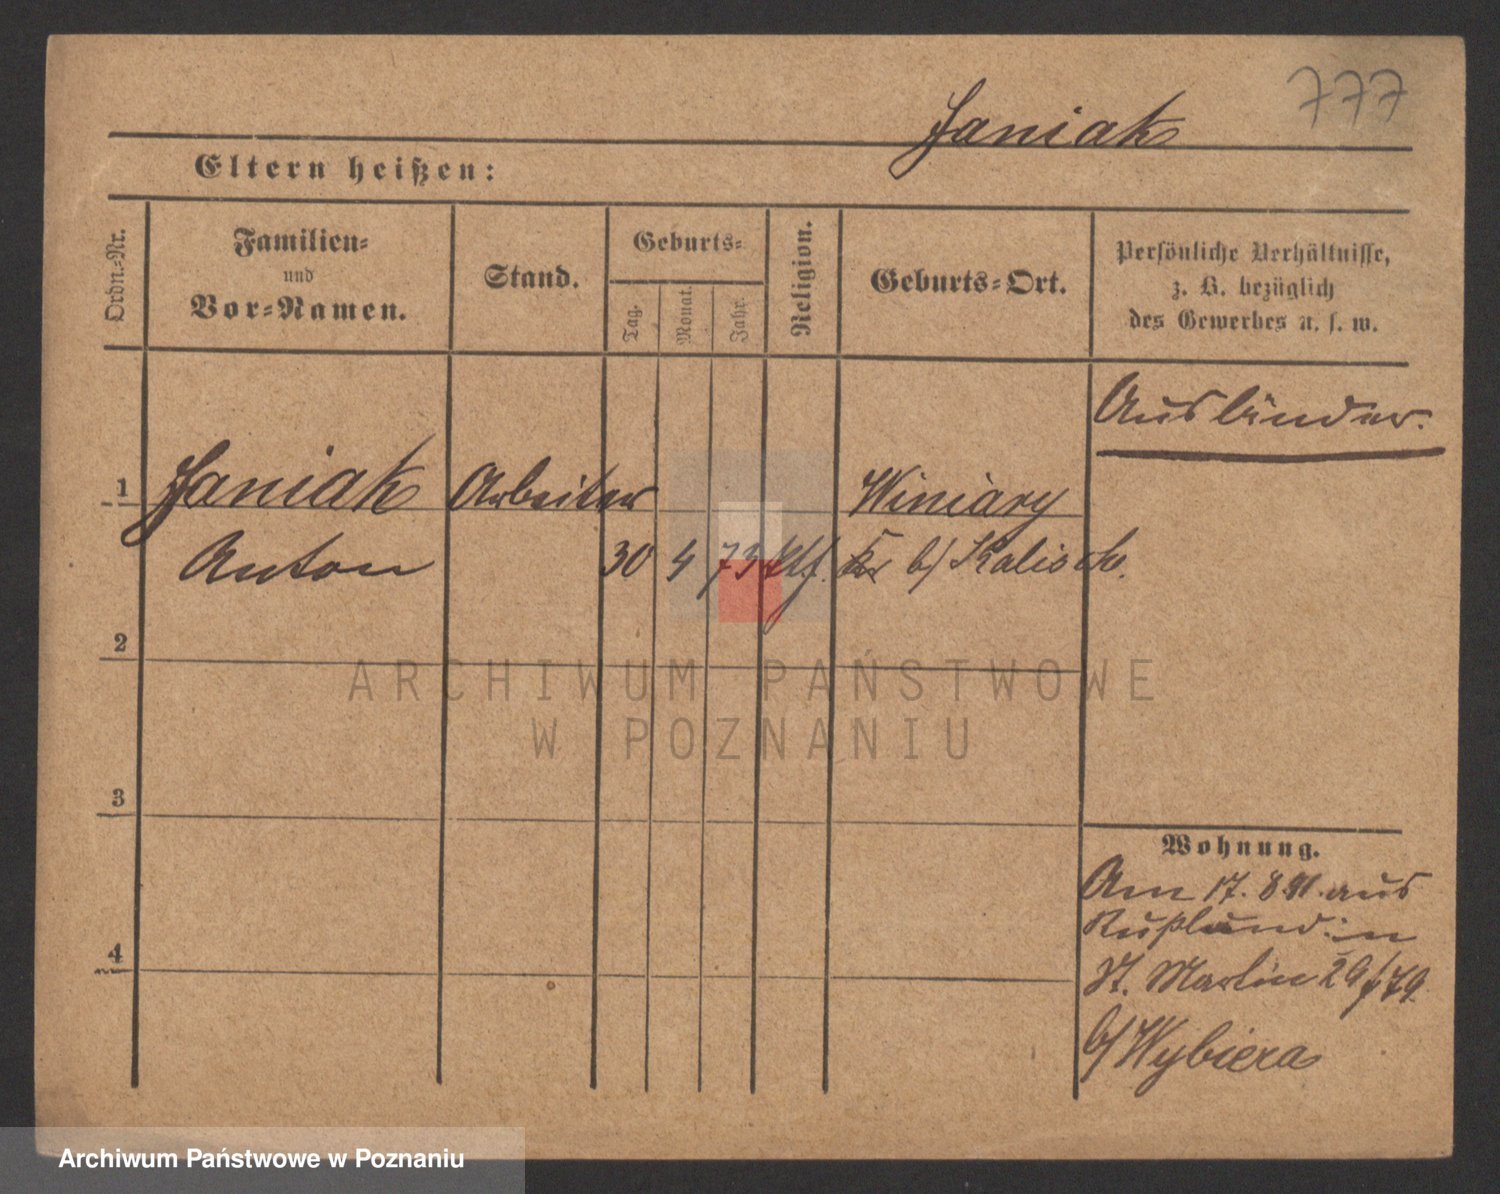 777
Janiak
Eltern heißen:
Ordn.-Nr.
Familien-
und
Vor-Namen.
Stand.
Geburts-
Tag.
Monat.
Jahr.
Religion.
Geburts-Ort.
Persönliche Verhältnisse,
z. B. bezüglich
des Gewerbes u. s. w.
Ausländer.
1 Janiak Arbeiter Winiary
Anton 30 4 73 ktf. b/ Kalisch.
2
3
4
Wohnung.
Am 17. 8 91. aus
Rußland in
St. Martin 29/79.
b/ Wybiera
ARCHIWUM PAŃSTWOWE
W POZNANIU
Archiwum Państwowe w Poznaniu